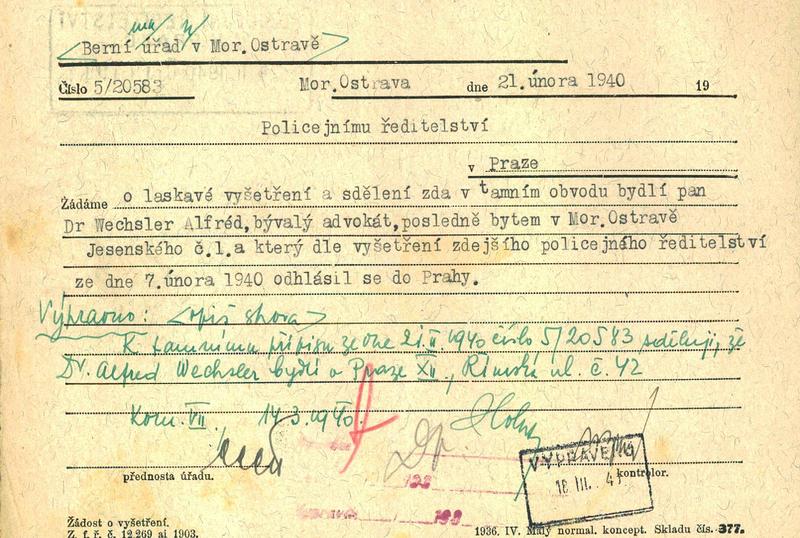 Berní úřad v Mor.Ostravě
Číslo 5/20583 Mor.Ostrava dne 21.února 1940 19
Policejnímu ředitelství
v Praze
Žádáme o laskavé vyšetření a sdělení zda v tamním obvodu bydlí pan
Dr Wechsler Alfréd,bývalý advokát,posledně bytem v Mor.Ostravě
Jesenského č.1.a který dle vyšetření zdejšího policejného ředitelství
ze dne 7.února 1940 odhlásil se do Prahy.
Vypraveno: <opis shora>
K tamnímu přípisu ze dne 21.II.1940 číslo 5/20583 sděluji, že
Dr. Alfred Wechsler bydlí v Praze XII., Římská ul. č. 42
Kom. VII. 14 3.1940.
Dr.
VYPRAVENO
18 III. 4
přednosta úřadu. kontrolor.
Žádost o vyšetření.
Z. f. ř. č. 12.269 ai 1903. 1936. IV. Malý normal. koncept. Skladu čís. 377.